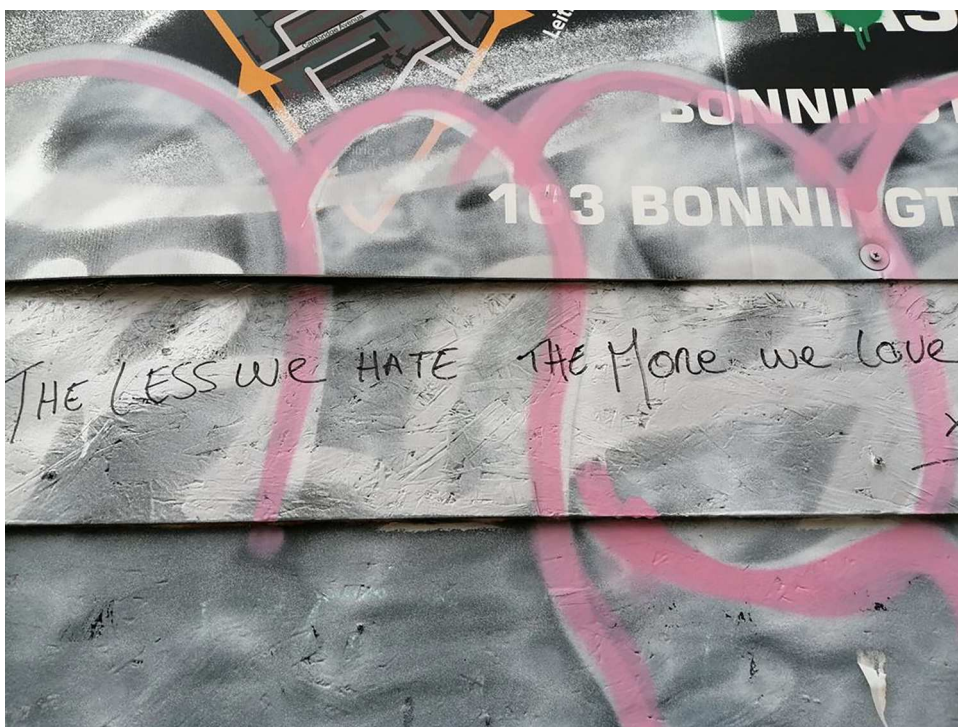 Cambridge Avenue
Leit
HAS
BONNINGT
103 BONNINGT
THE LESS we HATE THE More we Love
x